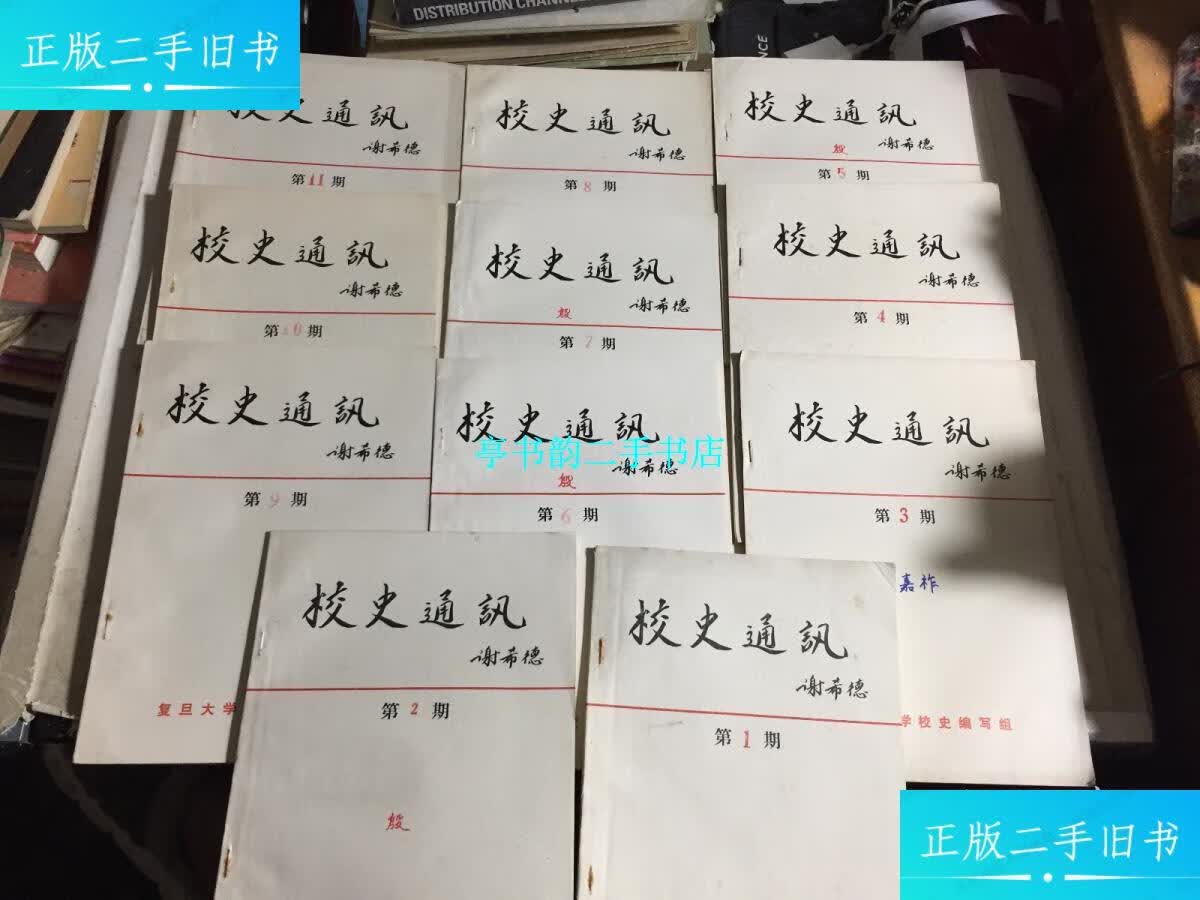 正版二手旧书
DISTRIBUTION CHANN
校史通訊
谢希德
第11期
校史通訊
谢希德
第8期
校史通訊
殷
谢希德
第5期
校史通訊
谢希德
第10期
校史通訊
殷
谢希德
第7期
校史通訊
谢希德
第4期
校史通訊
谢希德
第9期
复旦大学
校史通訊
谢希德
殷
第6期
亭书韵二手书店
校史通訊
谢希德
第3期
嘉祚
学校史编写组
校史通訊
谢希德
第2期
殷
校史通訊
谢希德
第1期
正版二手旧书